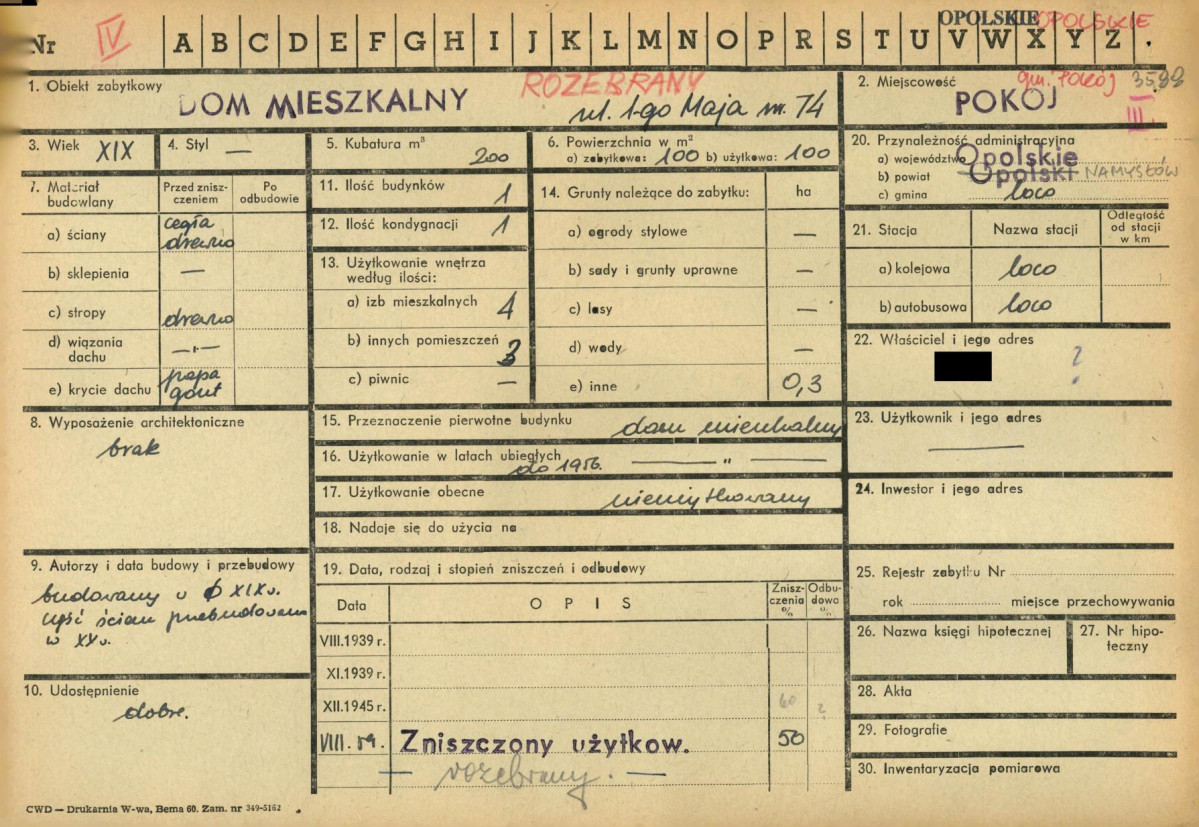 OPOLSKIE OPOLSKIE
Nr IV A B C D E F G H I J K L M N O P R S T U V W X Y Z .
1. Obiekt zabytkowy
DOM MIESZKALNY
ROZEBRANY
ul. 1-go Maja nr. 74
2. Miejscowość
gm. Pokój 3588
POKÓJ
III
3. Wiek XIX
4. Styl —
5. Kubatura m³
200
6. Powierzchnia w m²
a) zabytkowa: 100 b) użytkowa: 100
20. Przynależność administracyjna
a) województwo Opolskie
b) powiat Opolski NAMYSŁÓW
c) gmina loco
7. Materiał budowlany
Przed zniszczeniem
Po odbudowie
a) ściany cegła
drewno
b) sklepienia —
c) stropy drewno
d) wiązania dachu —"—
e) krycie dachu papa
gont
11. Ilość budynków 1
12. Ilość kondygnacji 1
13. Użytkowanie wnętrza
według ilości:
a) izb mieszkalnych 4
b) innych pomieszczeń 3
c) piwnic —
14. Grunty należące do zabytku: ha
a) ogrody stylowe —
b) sady i grunty uprawne —
c) lasy —
d) wody —
e) inne 0,3
21. Stacja
Nazwa stacji
Odległość
od stacji
w km
a) kolejowa loco
b) autobusowa loco
22. Właściciel i jego adres
?
8. Wyposażenie architektoniczne
brak
15. Przeznaczenie pierwotne budynku dom mieszkalny
16. Użytkowanie w latach ubiegłych
do 1956. — " —
17. Użytkowanie obecne
nieużytkowany
18. Nadaje się do użycia na
23. Użytkownik i jego adres
—
24. Inwestor i jego adres
9. Autorzy i data budowy i przebudowy
budowany w XIX w.
część ścian przebudowana
w XX w.
10. Udostępnienie
dobre.
19. Data, rodzaj i stopień zniszczeń i odbudowy
Data
OPIS
Zniszczenia %
Odbudowa %
VIII.1939 r.
XI.1939 r.
XII.1945 r. 60 ?
VIII. 59. Zniszczony użytkow. 50
— rozebrany. —
25. Rejestr zabytku Nr
rok miejsce przechowywania
26. Nazwa księgi hipotecznej
27. Nr hipoteczny
28. Akta
29. Fotografie
30. Inwentaryzacja pomiarowa
CWD — Drukarnia W-wa, Bema 60. Zam. nr 349-5162